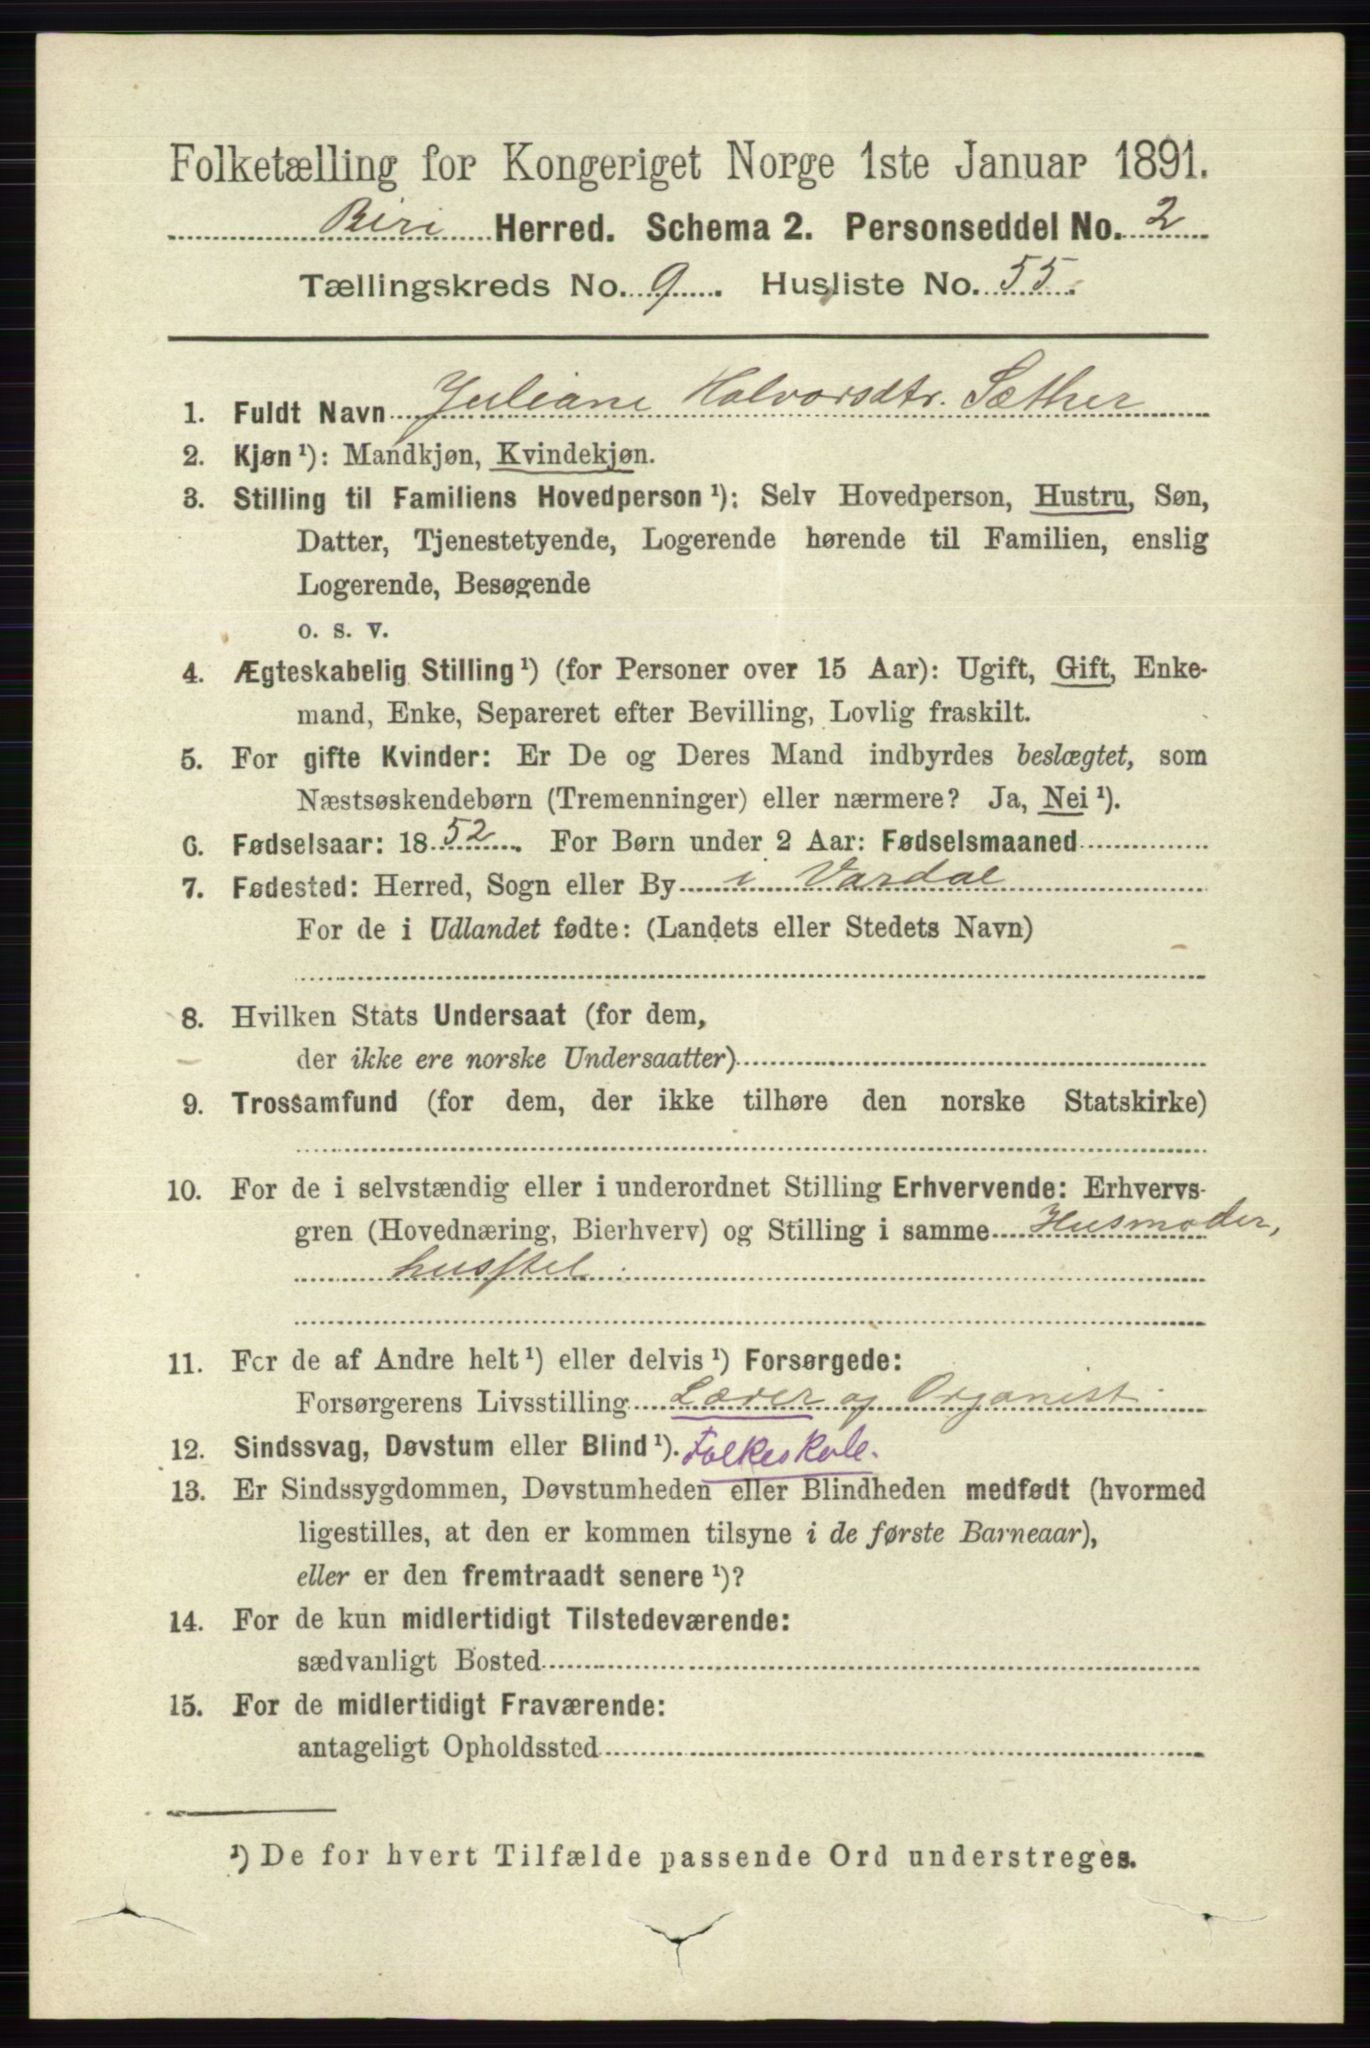 Folketælling for Kongeriget Norge 1ste Januar 1891.
Biri Herred. Schema 2. Personseddel No. 2
Tællingskreds No. 9. Husliste No. 55.
1. Fuldt Navn Juliane Halvorsdtr. Sæther
2. Kjøn ¹): Mandkjøn, Kvindekjøn.
3. Stilling til Familiens Hovedperson ¹): Selv Hovedperson, Hustru, Søn,
Datter, Tjenestetyende, Logerende hørende til Familien, enslig
Logerende, Besøgende
o. s. v.
4. Ægteskabelig Stilling ¹) (for Personer over 15 Aar): Ugift, Gift, Enke-
mand, Enke, Separeret efter Bevilling, Lovlig fraskilt.
5. For gifte Kvinder: Er De og Deres Mand indbyrdes beslægtet, som
Næstsøskendebørn (Tremenninger) eller nærmere? Ja, Nei ¹).
6. Fødselsaar: 1852. For Børn under 2 Aar: Fødselsmaaned
7. Fødested: Herred, Sogn eller By i Vardal
For de i Udlandet fødte: (Landets eller Stedets Navn)
8. Hvilken Stats Undersaat (for dem,
der ikke ere norske Undersaatter)
9. Trossamfund (for dem, der ikke tilhøre den norske Statskirke)
10. For de i selvstændig eller i underordnet Stilling Erhvervende: Erhvervs-
gren (Hovednæring, Bierhverv) og Stilling i samme Husmoder,
husstel
11. For de af Andre helt ¹) eller delvis ¹) Forsørgede:
Forsørgerens Livsstilling Lærer og Organist
12. Sindssvag, Døvstum eller Blind ¹). Folkeskole.
13. Er Sindssygdommen, Døvstumheden eller Blindheden medfødt (hvormed
ligestilles, at den er kommen tilsyne i de første Barneaar),
eller er den fremtraadt senere ¹)?
14. For de kun midlertidigt Tilstedeværende:
sædvanligt Bosted
15. For de midlertidigt Fraværende:
antageligt Opholdssted
¹) De for hvert Tilfælde passende Ord understreges.